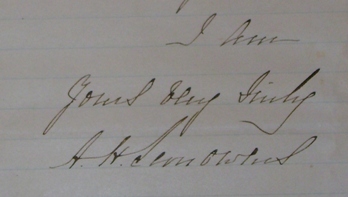 I am
Yours very truly
A. H. Leonowens